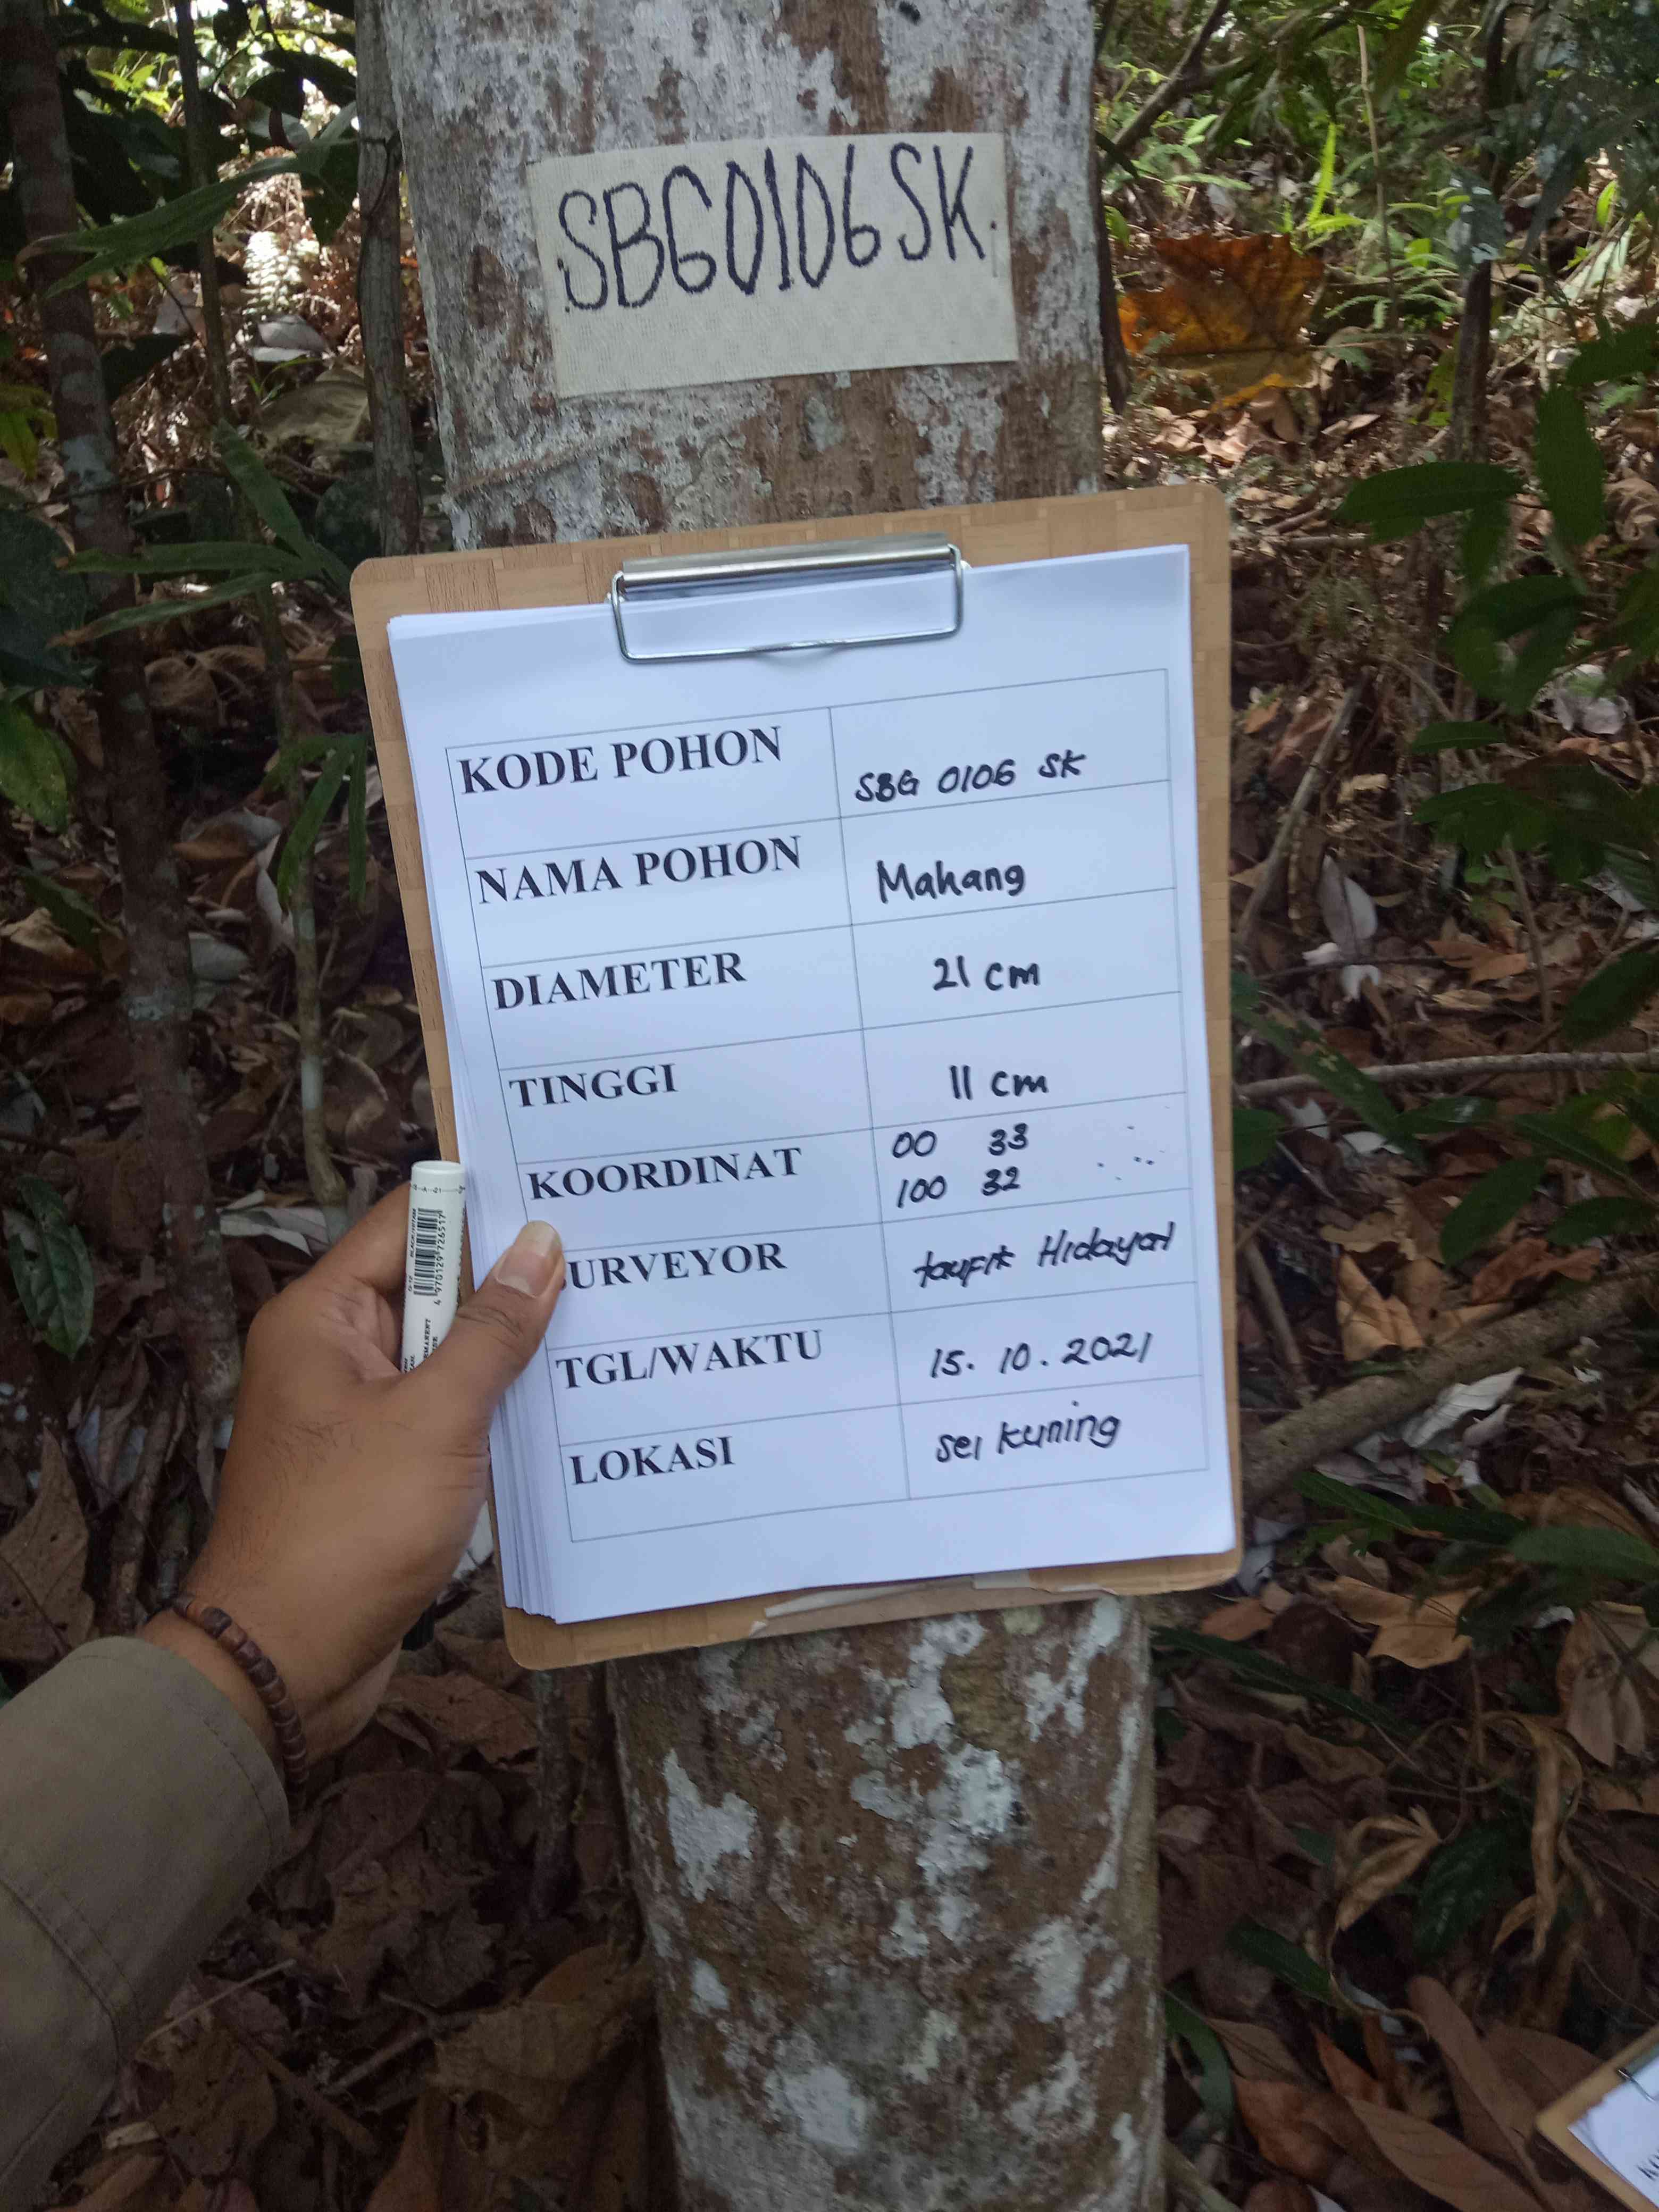 SBG0106 SK
KODE POHON SBG 0106 SK
NAMA POHON Mahang
DIAMETER 21 cm
TINGGI 11 cm
KOORDINAT 00 33
100 32
URVEYOR taufik Hidayat
TGL/WAKTU 15. 10. 2021
LOKASI sei kuning
4 970129 726517